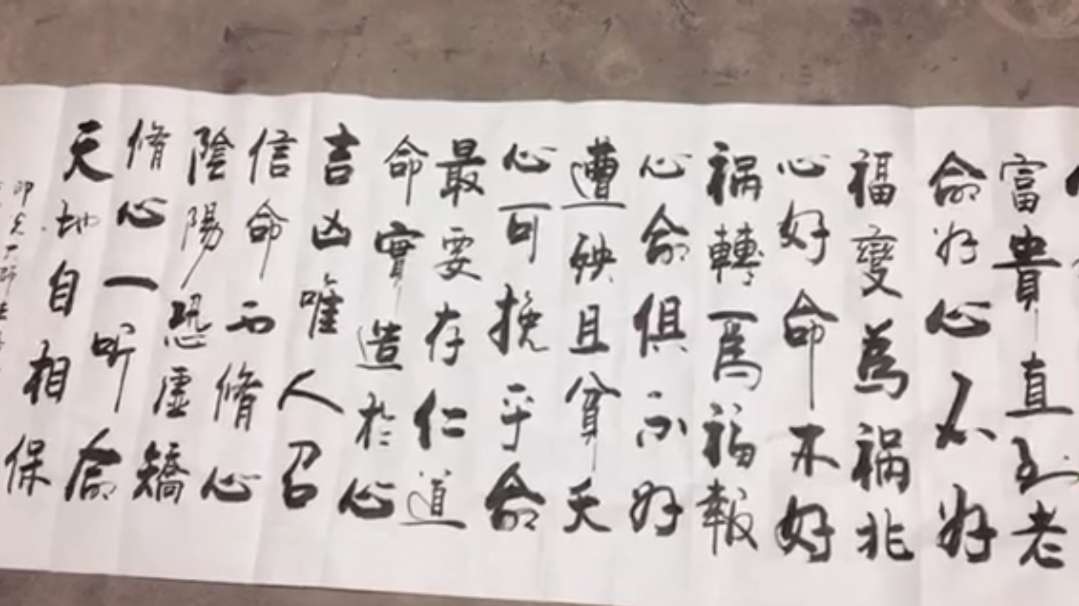 富貴直到老
命好心不好
福變為禍兆
心好命不好
禍轉為福報
心命俱不好
遭殃且貧夭
心可挽乎命
最要存仁道
命實造於心
吉凶唯人召
信命不脩心
陰陽恐虛矯
脩心一听命
天地自相保